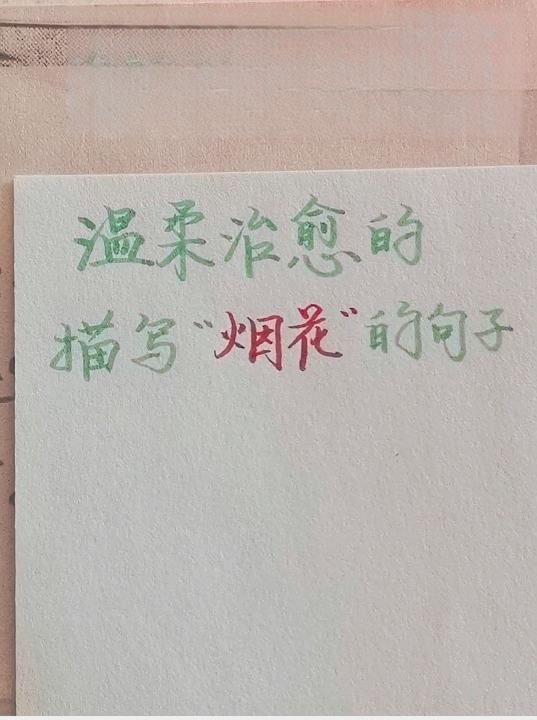 温柔治愈的
描写“烟花”的句子